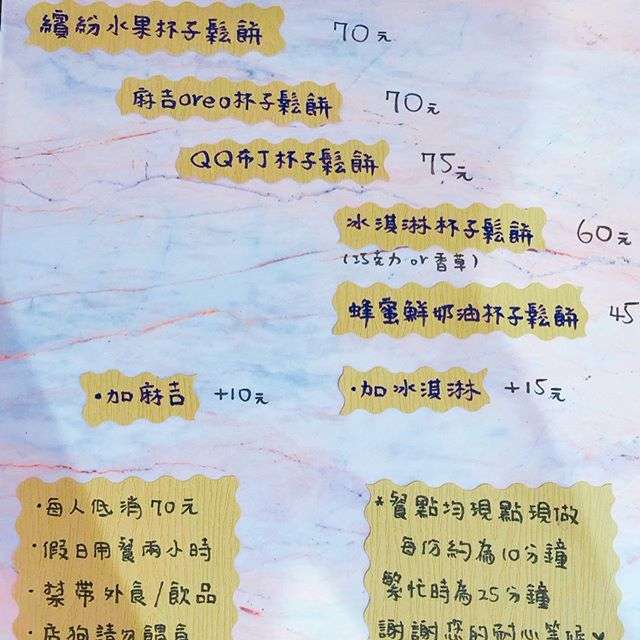 繽紛水果杯子鬆餅 70元
麻吉oreo杯子鬆餅 70元
QQ布丁杯子鬆餅 75元
冰淇淋杯子鬆餅 60元
(巧克力 or 香草)
蜂蜜鮮奶油杯子鬆餅 45
·加麻吉 +10元
·加冰淇淋 +15元
·每人低消70元
·假日用餐兩小時
·禁帶外食/飲品
·店狗請勿餵食
*餐點均現點現做
每份約為10分鐘
繁忙時為25分鐘
謝謝您的耐心等候♥